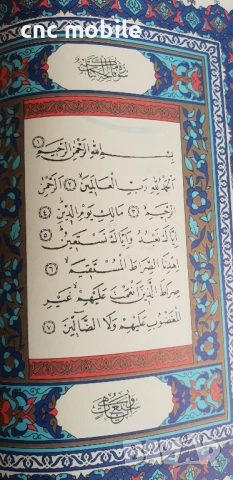 cnc mobile
سورة فاتحة الكتاب
بِسْمِ اللهِ الرَّحْمٰنِ الرَّحِيمِ ﴿١﴾
اَلْحَمْدُ لِلّٰهِ رَبِّ الْعَالَمِينَ ﴿٢﴾ اَلرَّحْمٰنِ
الرَّحِيمِ ﴿٣﴾ مَالِكِ يَوْمِ الدِّينِ ﴿٤﴾
اِيَّاكَ نَعْبُدُ وَاِيَّاكَ نَسْتَعِينُ ﴿٥﴾
اِهْدِنَا الصِّرَاطَ الْمُسْتَقِيمَ ﴿٦﴾
صِرَاطَ الَّذِينَ اَنْعَمْتَ عَلَيْهِمْ غَيْرِ
الْمَغْضُوبِ عَلَيْهِمْ وَلَا الضَّالِّينَ ﴿٧﴾